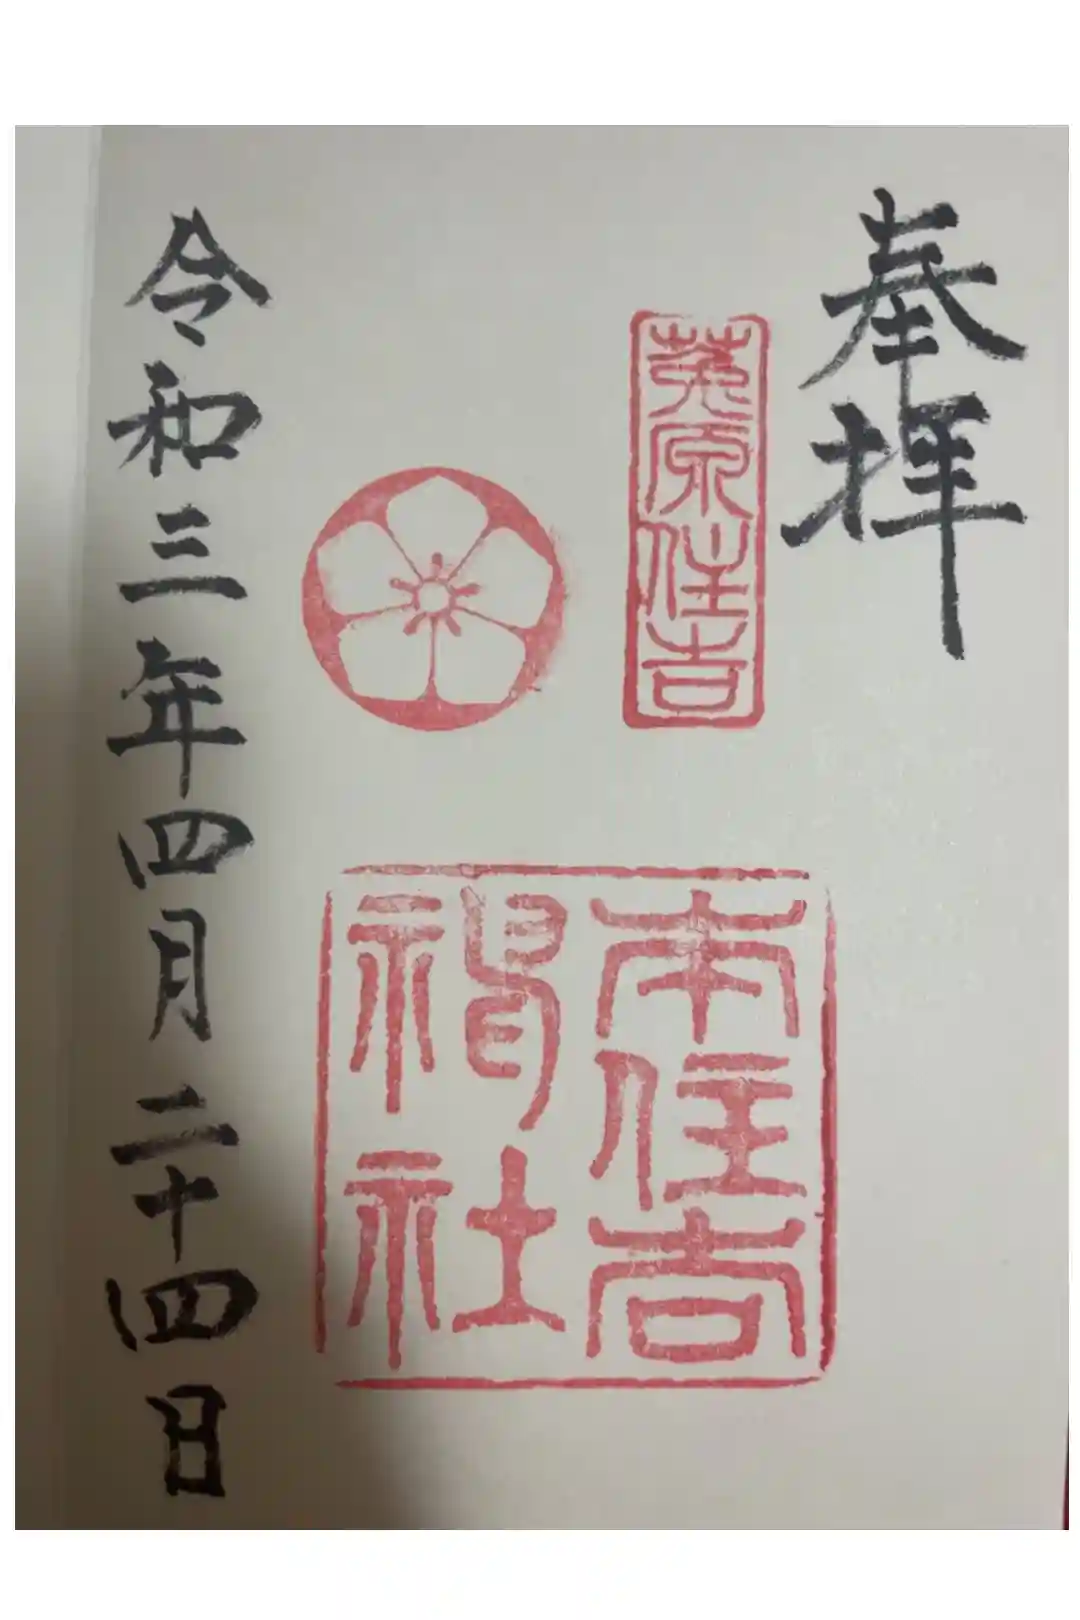 奉拝
菟原住吉
本住吉
神社
令和三年四月二十四日